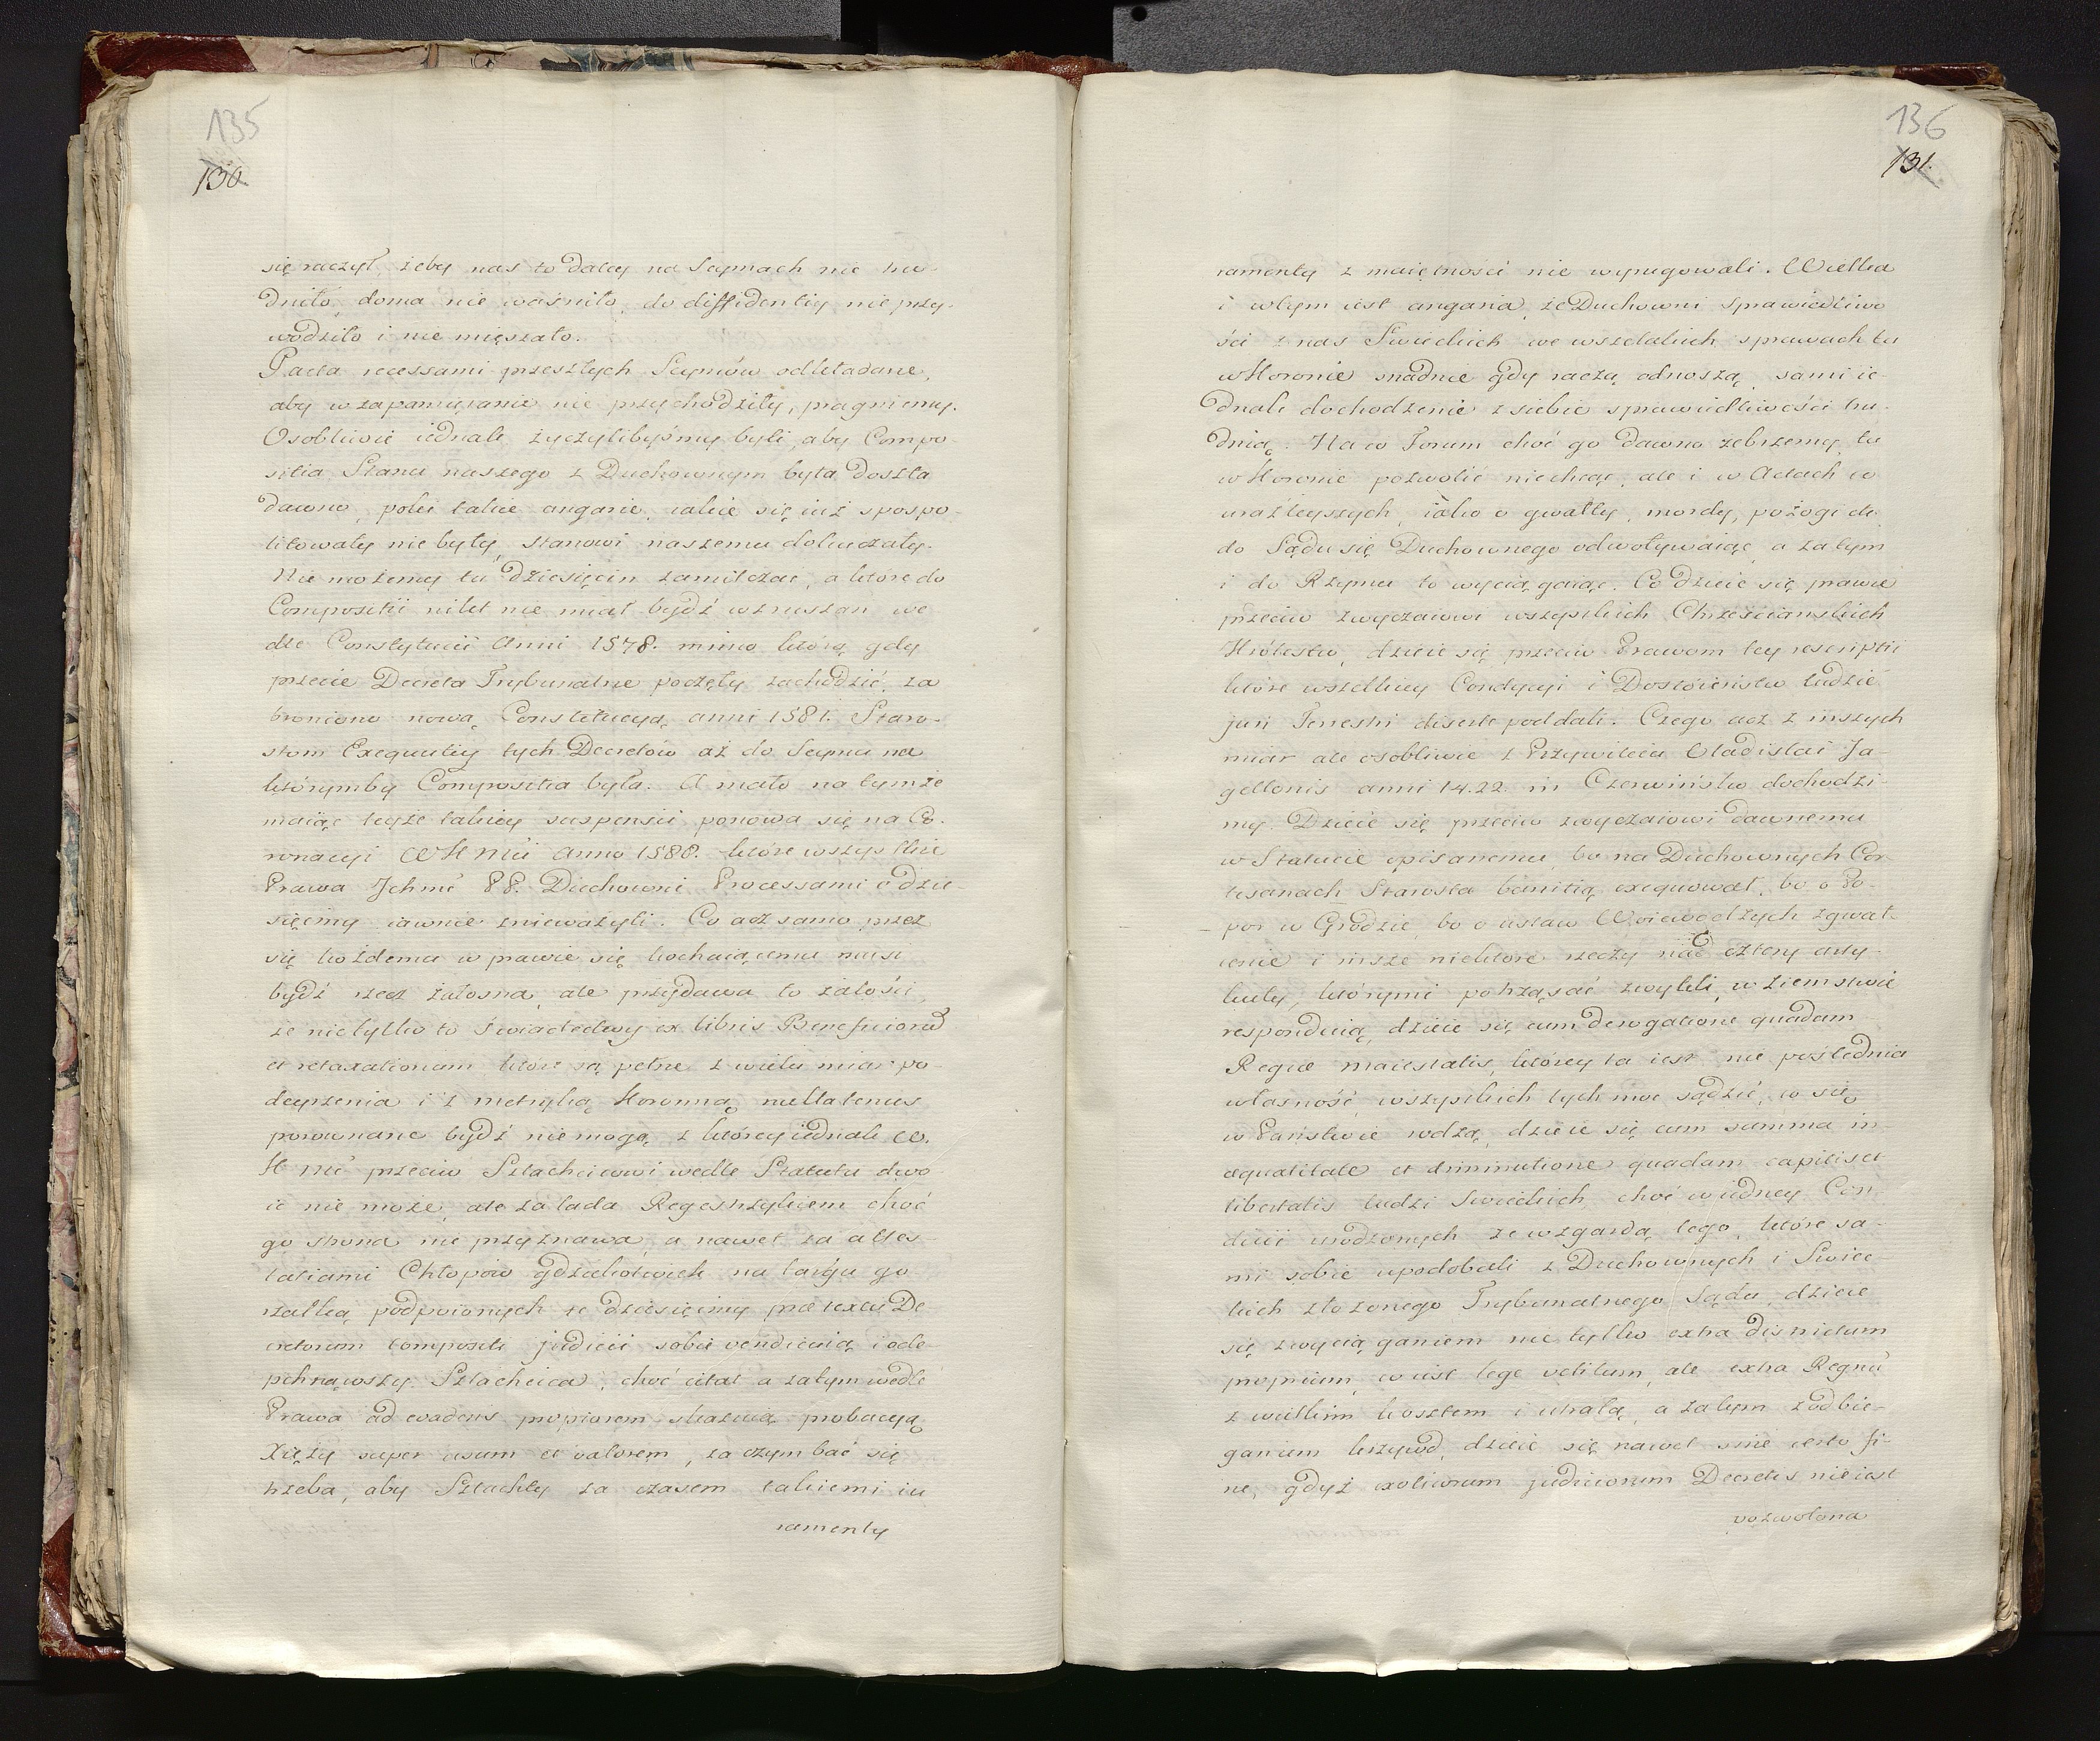 135
130.
się raczył, żeby nas to daley na Seymach nie tru-
dniło, doma nie waśniło, do diffidentiey nie przy-
wodziło i nie mięszało.
Pacta recessami przeszłych Seymów odkładane,
aby w zapamiętanie nie przychodziły, pragniemy.
Osobliwie iednak życzylibyśmy byli, aby Compo-
sitia Stanu naszego z Duchownym była doszła
dawno, poki takie angarie, iakie się iuż spospo-
litowały nie były, stanowi naszemu dokuczały.
Nie możemy tu Dziesięcin zamilczać, o które do
Compositii nikt nie miał bydź wzruszan we
dle Constytucii Anni 1578. mimo którą gdy
przecie Decreta Trybunalne poczęły zachodzić, za
broniono nową Constitucyą anni 1581. Staro-
stom Exequutiey tych Decretów aż do Seymu na
którymby Compositia była. A mało na tymże
maiąc teyże takiey suspensii ponowa się na Co-
ronacyi WKMci Anno 1588. które wszystkie
Prawa Jchmć PP. Duchowni Processami o dzie-
sięciny iawnie znieważyli. Co acz samo przez
się każdemu w prawie się kochaiącemu musi
bydź rzecz żałosna, ale przydawa to żałości,
że nie tylko to świadectwy ex libris Beneficiorū
et retaxationum które są pełne z wielu miar po-
deyrzenia i z metryką Koronną nullatenus
porownane bydź nie mogą, z którey iednak W.
K Mć przeciw Szlachcicowi wedle Statutu dwo-
ie nie może, ale za lada Regestrzykiem choć
go strona nie przyznawa, a nawet za attes-
tatiami Chłopów gdziekolwiek na targu go
rzałką podpoionych te dziesięciny prætextu De
cretorum compositi judicii sobie vendicuią i ode-
pchnąwszy Szlachcica, choć citat a zatym wedle
Prawa ad evadens propiorem skazuią probacyą
Xięży super usum et valorem, za czym bać się
trzeba, aby Szlachty za czasem takiemi iu
ramenty
136
131.
ramenty z maiętności nie wyrugowali. Wielka
i w tym iest angaria, że Duchowni sprawiedliwo
ści z nas Swieckich we wszelakich sprawach tu
w Koronie snadnie gdy raczą odnoszą, sami ie-
dnak dochodzenie z siebie sprawiedliwości tru-
dnią. Na co Forum choć go dawno żebrzemy, tu
w Koronie pozwolić nie chcąc, ale i w Actach co
uraźleyszych, iako o gwałty, mordy, pożogi etc
do Sądu się Duchownego odwoływaiąc, a zatym
i do Rzymu to wyciągaiąc. Co dzieie się prawie
przeciw zwyczaiowi wszystkich Chrześcianskich
Królestw, dzieie się przeciw Prawom tey rescriptii
które wszelkiey Condycyi i Dostóieństw ludzie
juri Terrestri diserte poddali. Czego acz z inszych
miar ale osobliwie z Przywileiu Vladislai Ja-
gellonis anni 1422. in Czerwińsko dochodzi-
my. Dzieie się przeciw zwyczaiowi dawnemu
w Statucie opisanemu, bo na Duchownych Cor-
tesanach Starosta banitią exequował, bo o Po-
por w Grodzie, bo o ustaw Woiewodzych zgwał-
cenie i insze niektóre rzeczy nad cztery arty-
kuły, którymi potrząsać zwykli, w ziemstwie
responduią, dzieie się cum derogatione quadam
Regiæ maiestatis, którey ta iest nie poślednia
własność, wszystkich tych móc sądzić, co się
w Państwie rodzą, dzieie się cum summa in
æqualitate et diminutione quadam capitis et
libertatis ludzi Swieckich, choć w iedney Con-
dicii urodzonych ze wzgardą tego, które sa-
mi sobie upodobali z Duchownych i Swiec
kich złożonego Trybunalnego Sądu, dzieie
się z wyciąganiem nie tylko extra districtum
proprium, co iest lege vetitum, ale extra Regnū
z wielkim kosztem i utratą, a zatym z odbie-
ganiem krzywd, dzieie się nawet sine certo fi-
ne, gdyż exoticorum judiciorum Decretis nie iest
pozwolona